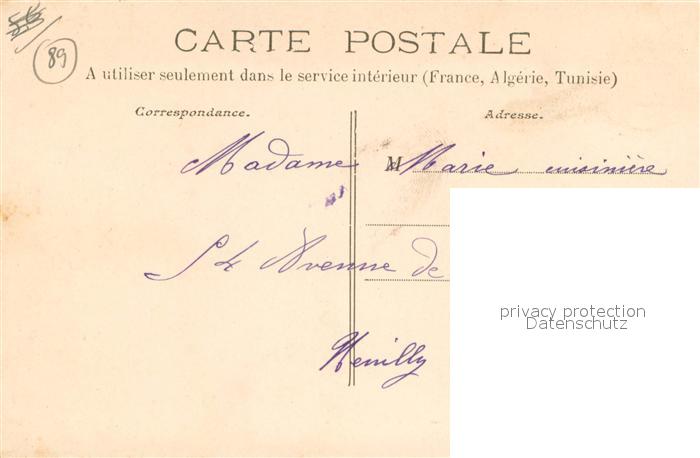 89
CARTE POSTALE
A utiliser seulement dans le service intérieur (France, Algérie, Tunisie)
Correspondance.
Adresse.
Madame M Marie cuisinière
54 Avenue de
Neuilly
privacy protection
Datenschutz